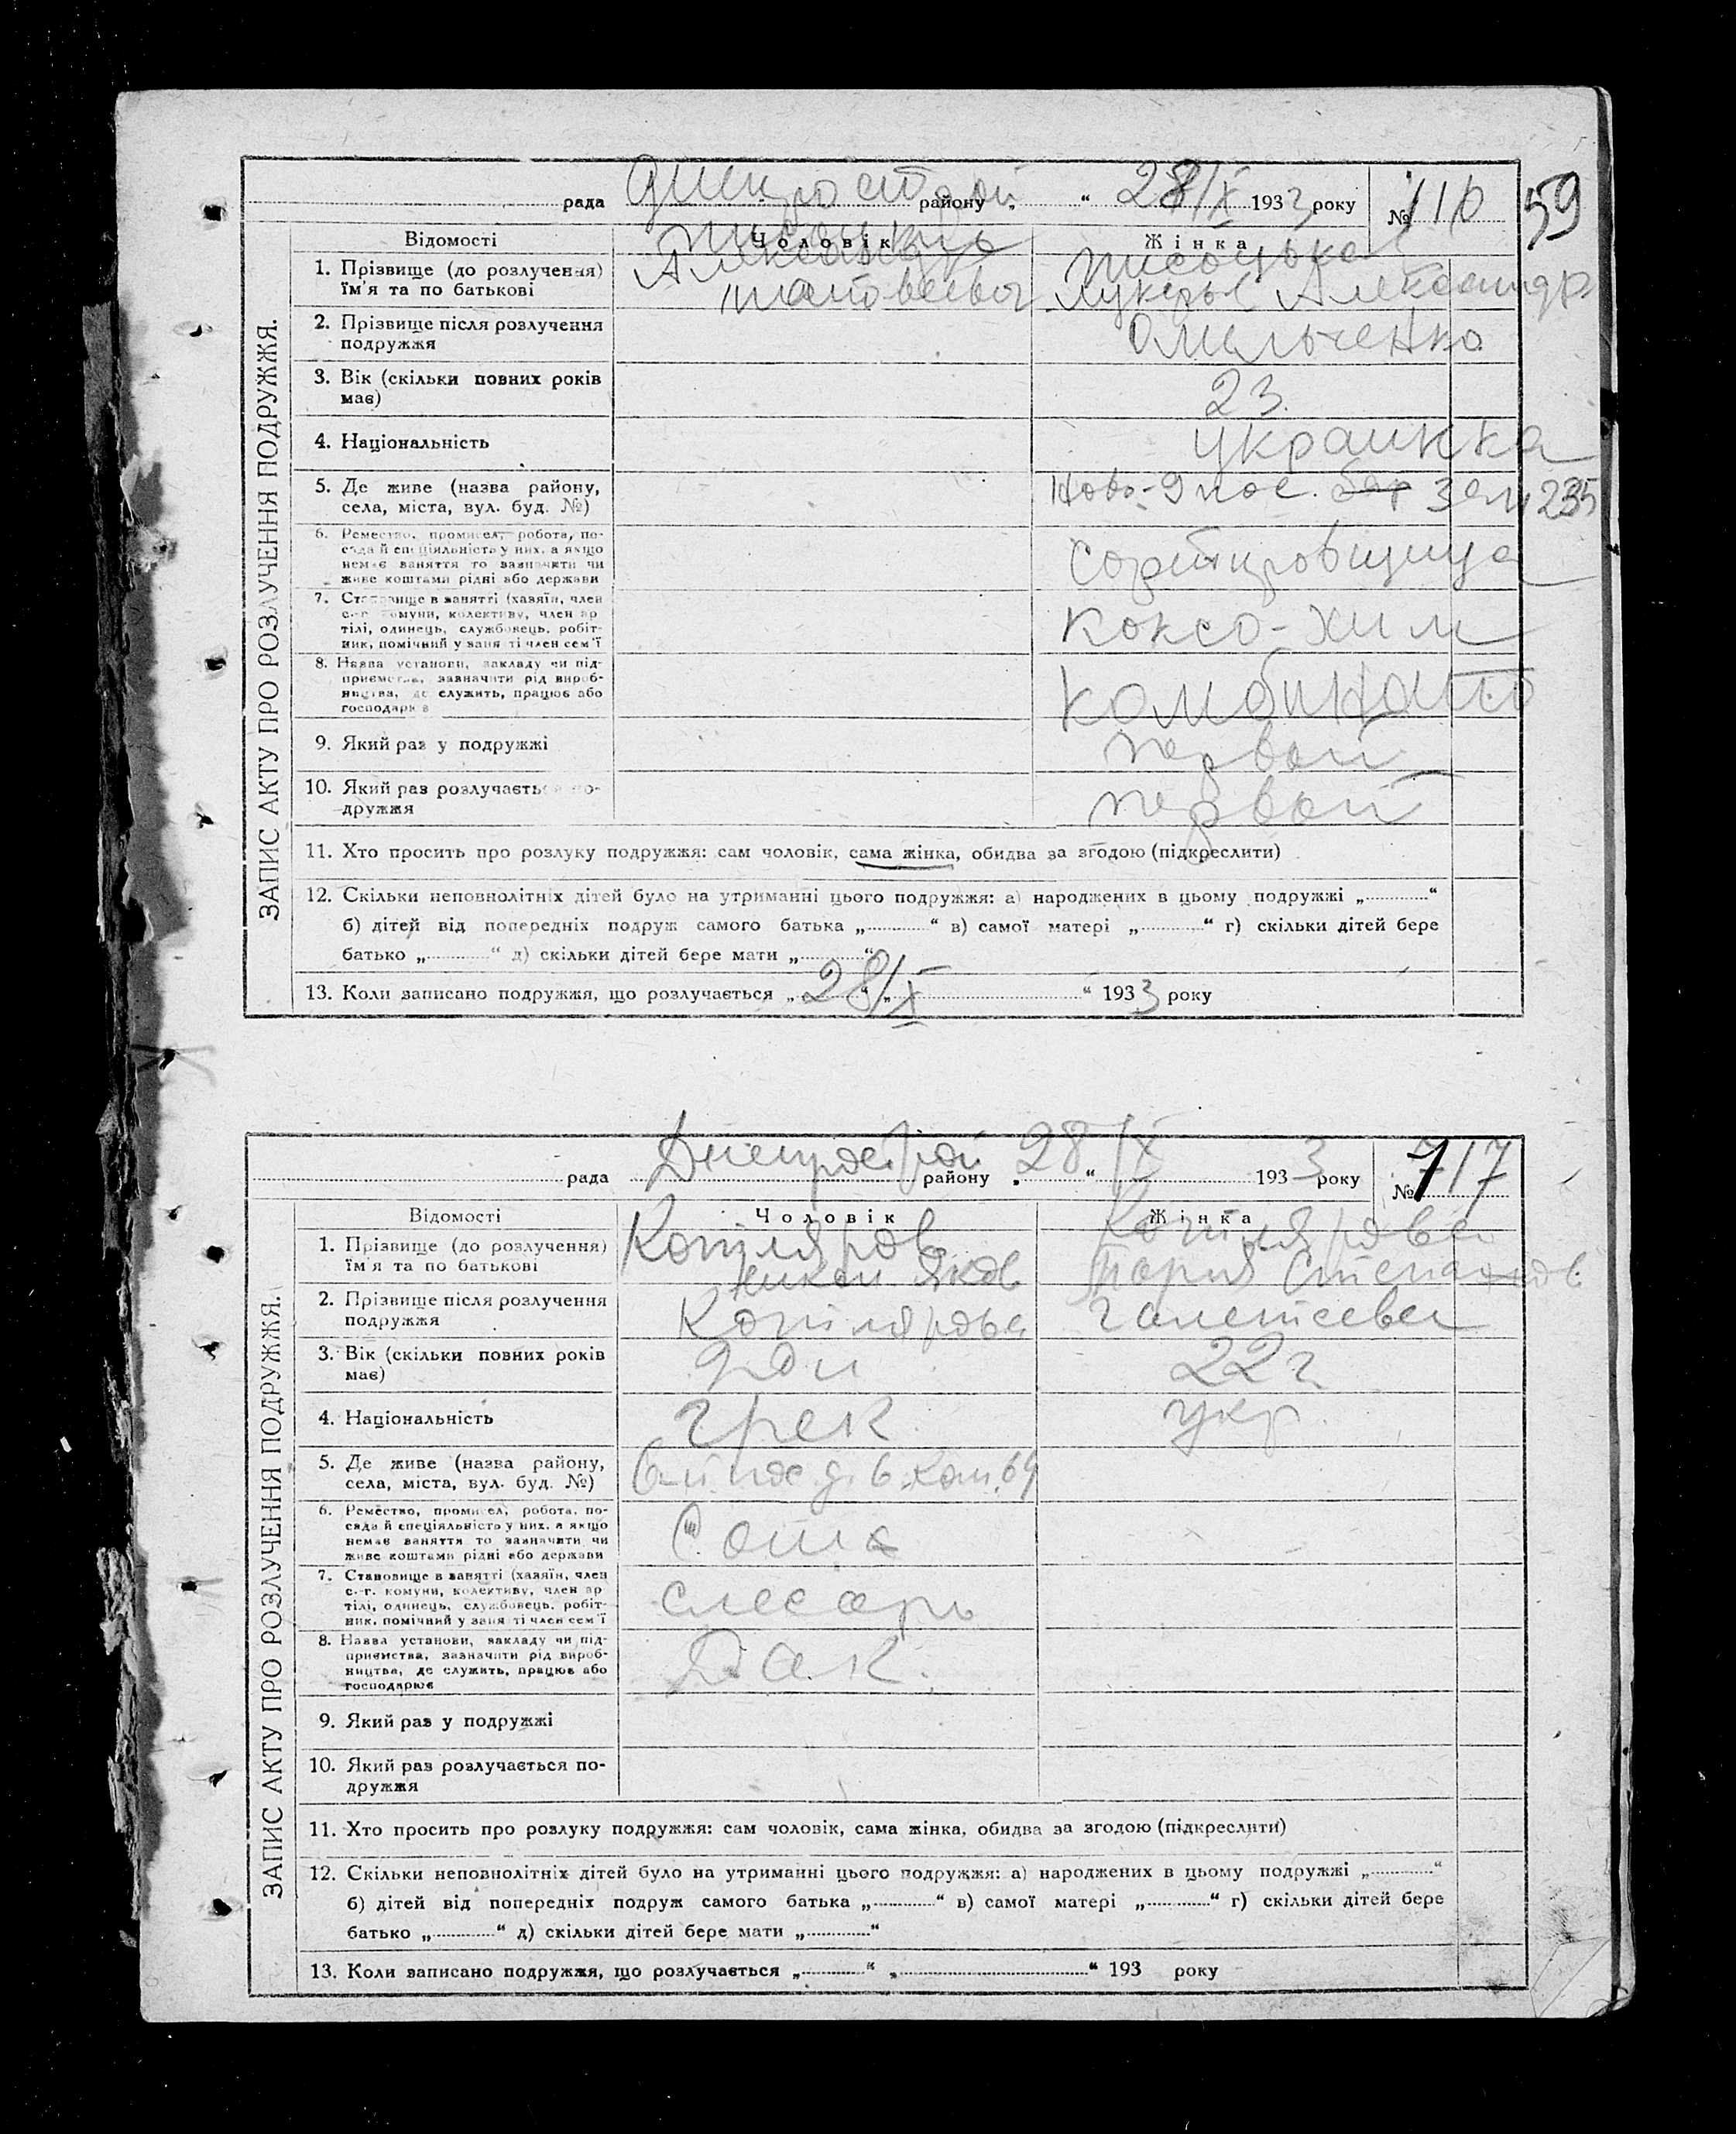 59
ЗАПИС АКТУ ПРО РОЗЛУЧЕННЯ ПОДРУЖЖЯ.
рада Днепрострой району „ “ 28/X 1933 року № 116
Відомості Чоловік Жінка
1. Прізвище (до розлучення) їм'я та по батькові
Александр
Александр.
2. Прізвище після розлучення подружжя
Омельченко
3. Вік (скільки повних років має)
23
4. Національність
украинка
5. Де живе (назва району, села, міста, вул. буд. №)
Ново-9 пос. 235
6. Ремество, промисел, робота, посада й спеціяльність у них, а якщо немає заняття то зазначити чи живе коштами рідні або держави
сортировщица
7. Становище в занятті (хазяїн, член с.-г. комуни, колективу, член артілі, одинець, службовець, робітник, помічний у занятті член сем'ї
Коксо-хим
8. Назва установи, закладу чи підприємства, зазначити рід виробництва, де служить, працює або господарює
комбинат
9. Який раз у подружжі
первой
10. Який раз розлучається подружжя
первой
11. Хто просить про розлуку подружжя: сам чоловік, сама жінка, обидва за згодою (підкреслити)
12. Скільки неповнолітніх дітей було на утриманні цього подружжя: а) народжених в цьому подружжі „ “
б) дітей від попередніх подруж самого батька „ “ в) самої матері „ “ г) скільки дітей бере
батько „ “ д) скільки дітей бере мати „ “
13. Коли записано подружжя, що розлучається „28/X “ 1933 року
ЗАПИС АКТУ ПРО РОЗЛУЧЕННЯ ПОДРУЖЖЯ.
рада Днепрострой району „ 28 “ /X 1933 року № 117
Відомості Чоловік Жінка
1. Прізвище (до розлучення) їм'я та по батькові
Котляров Котлярова
Яков Степанов
2. Прізвище після розлучення подружжя
3. Вік (скільки повних років має)
22 г
4. Національність
грек укр.
5. Де живе (назва району, села, міста, вул. буд. №)
6-й пос д. 6 ком. 69
6. Ремество, промисел, робота, посада й спеціяльність у них, а якщо немає заняття то зазначити чи живе коштами рідні або держави
7. Становище в занятті (хазяїн, член с.-г. комуни, колективу, член артілі, одинець, службовець, робітник, помічний у занятті член сем'ї
слесарь
8. Назва установи, закладу чи підприємства, зазначити рід виробництва, де служить, працює або господарює
Дак.
9. Який раз у подружжі
10. Який раз розлучається подружжя
11. Хто просить про розлуку подружжя: сам чоловік, сама жінка, обидва за згодою (підкреслити)
12. Скільки неповнолітніх дітей було на утриманні цього подружжя: а) народжених в цьому подружжі „ “
б) дітей від попередніх подруж самого батька „ “ в) самої матері „ “ г) скільки дітей бере
батько „ “ д) скільки дітей бере мати „ “
13. Коли записано подружжя, що розлучається „ “ „ “ 193 року